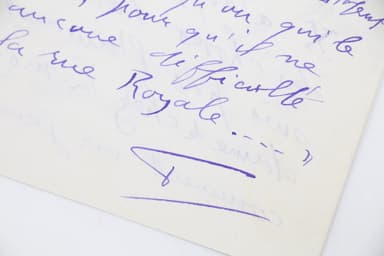 qu'on qui le
, pour qu'il ne
aucune difficulté
la rue Royale .... »